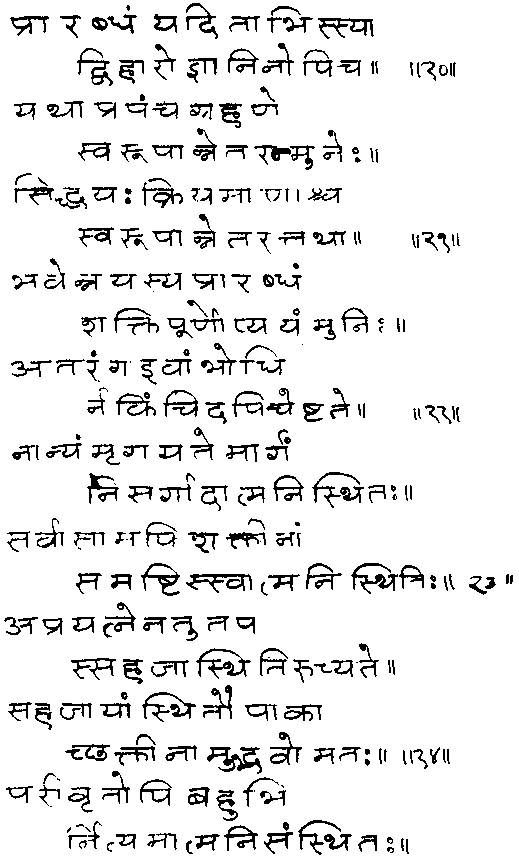 प्रारब्धं यदि ताभिस्स्या
द्विहारो ज्ञानिनोपि च॥ ॥२०॥
यथा प्रपंच ग्रहणे
स्वरूपान्नेतरन्मुनेः॥
सिद्धयः क्रियमाणाश्च
स्वरूपान्नेतरत्तथा॥ ॥२१॥
भवेन्न यस्य प्रारब्धं
शक्तिपूर्णोप्ययं मुनिः॥
अतरंग इवांभोधि
र्न किंचिदपि चेष्टते॥ ॥२२॥
नान्यं मृगयते मार्गं
निसर्गादात्मनि स्थितः॥
सर्वासामपि शक्तीनां
समष्टिस्स्वात्मनि स्थितिः॥ २३॥
अप्रयत्नेन तु तप
स्सहजा स्थितिरुच्यते॥
सहजायां स्थितौ पाका
च्छक्तीनामुद्भवो मतः॥ ॥२४॥
परीवृतोपि बहुभि
र्नित्यमात्मनि संस्थितः॥